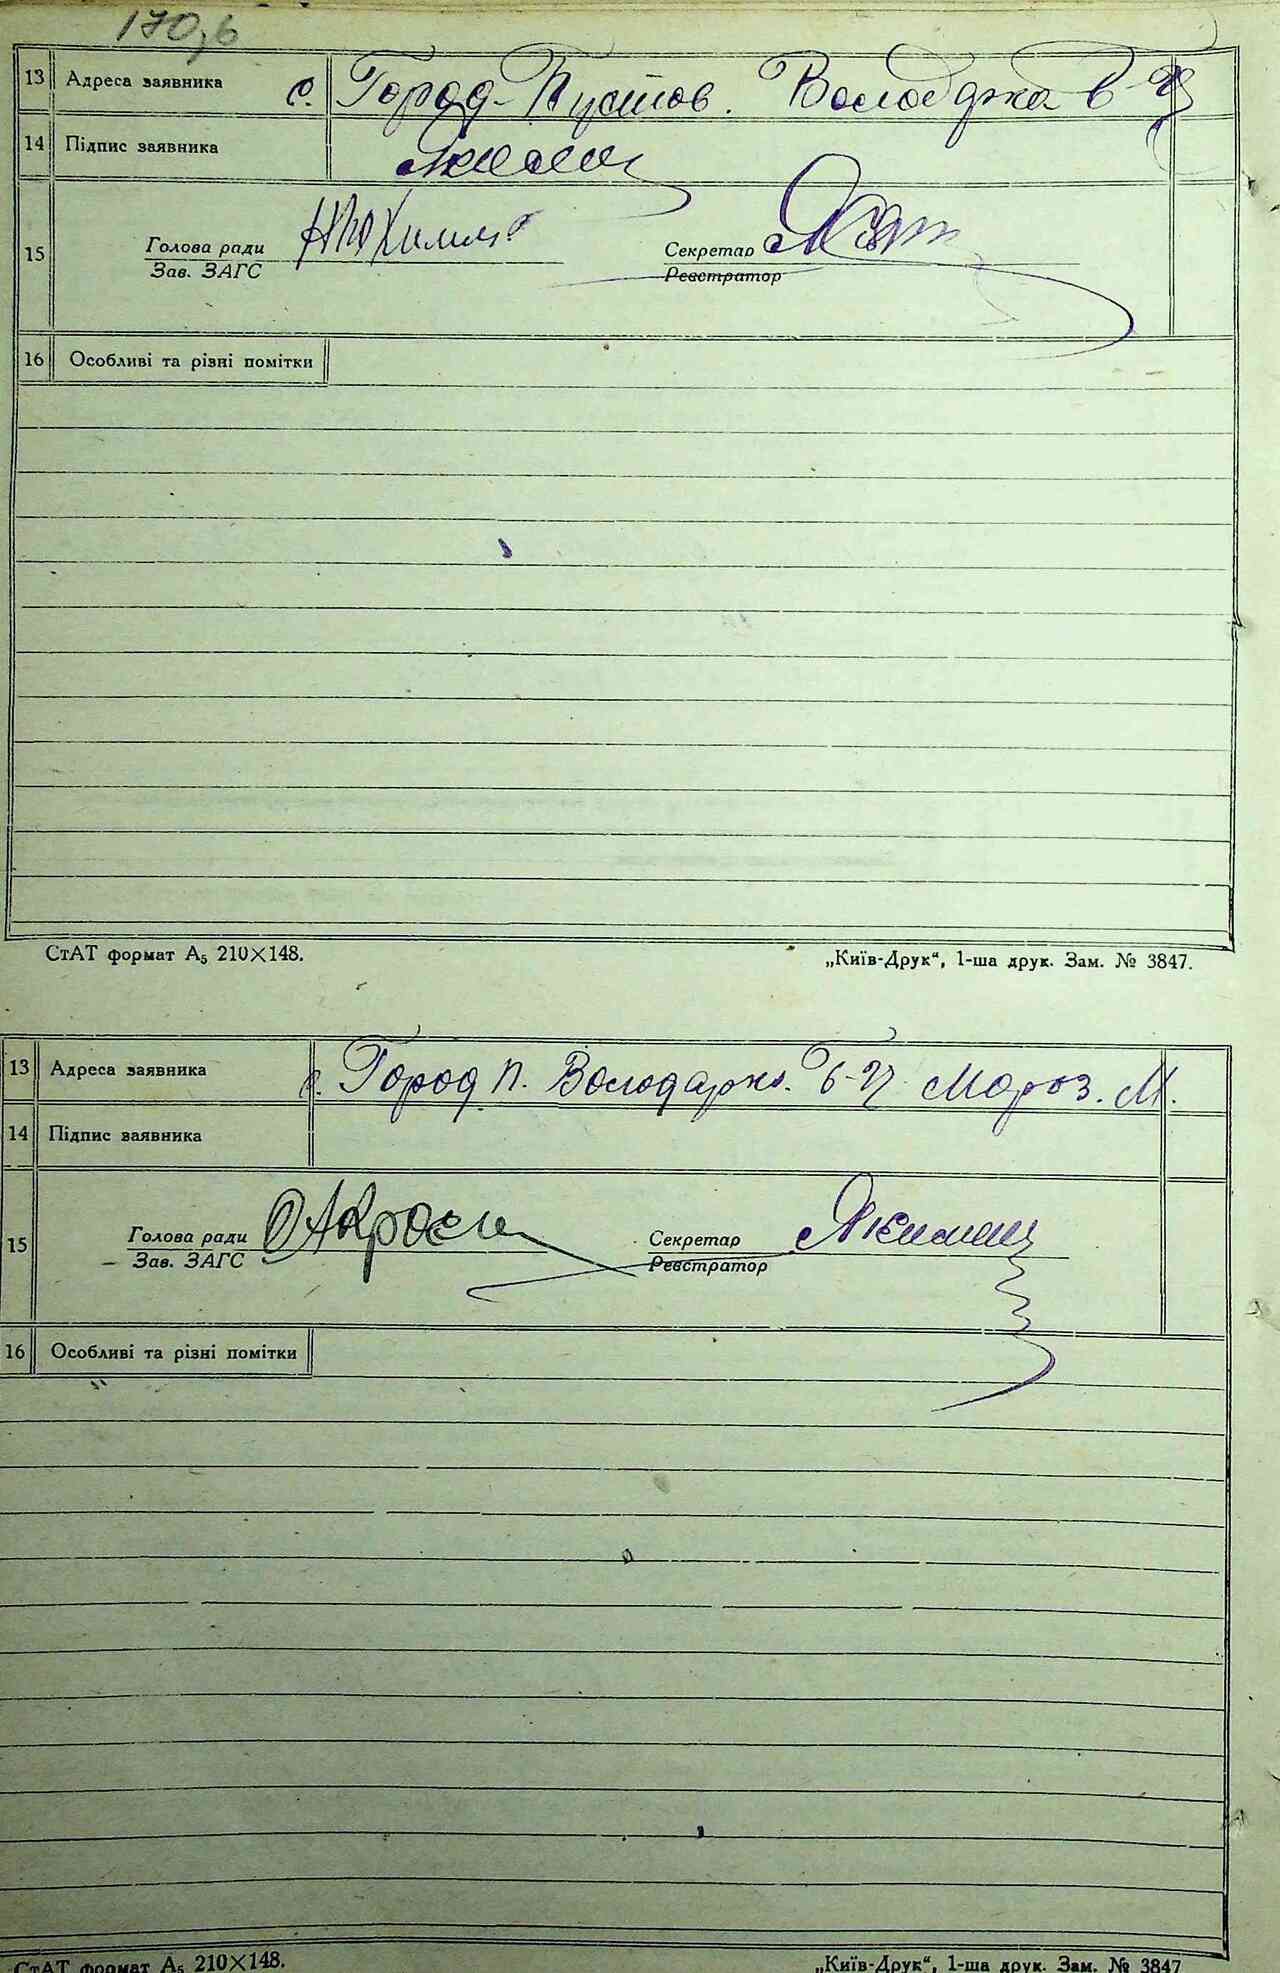 170,б
13 Адреса заявника с. Город-Пустов. Володарка в-
14 Підпис заявника
Голова ради Секретар
15
Зав. ЗАГС Реєстратор
16 Особливі та різні помітки
СтАТ формат А₅ 210×148. „Київ-Друк“, 1-ша друк. Зам. № 3847.
13 Адреса заявника с. Город П. Володарка. Мороз. М.
14 Підпис заявника
Голова ради Секретар Якимец
15
Зав. ЗАГС Реєстратор
16 Особливі та різні помітки
СтАТ формат А₅ 210×148. „Київ-Друк“, 1-ша друк. Зам. № 3847